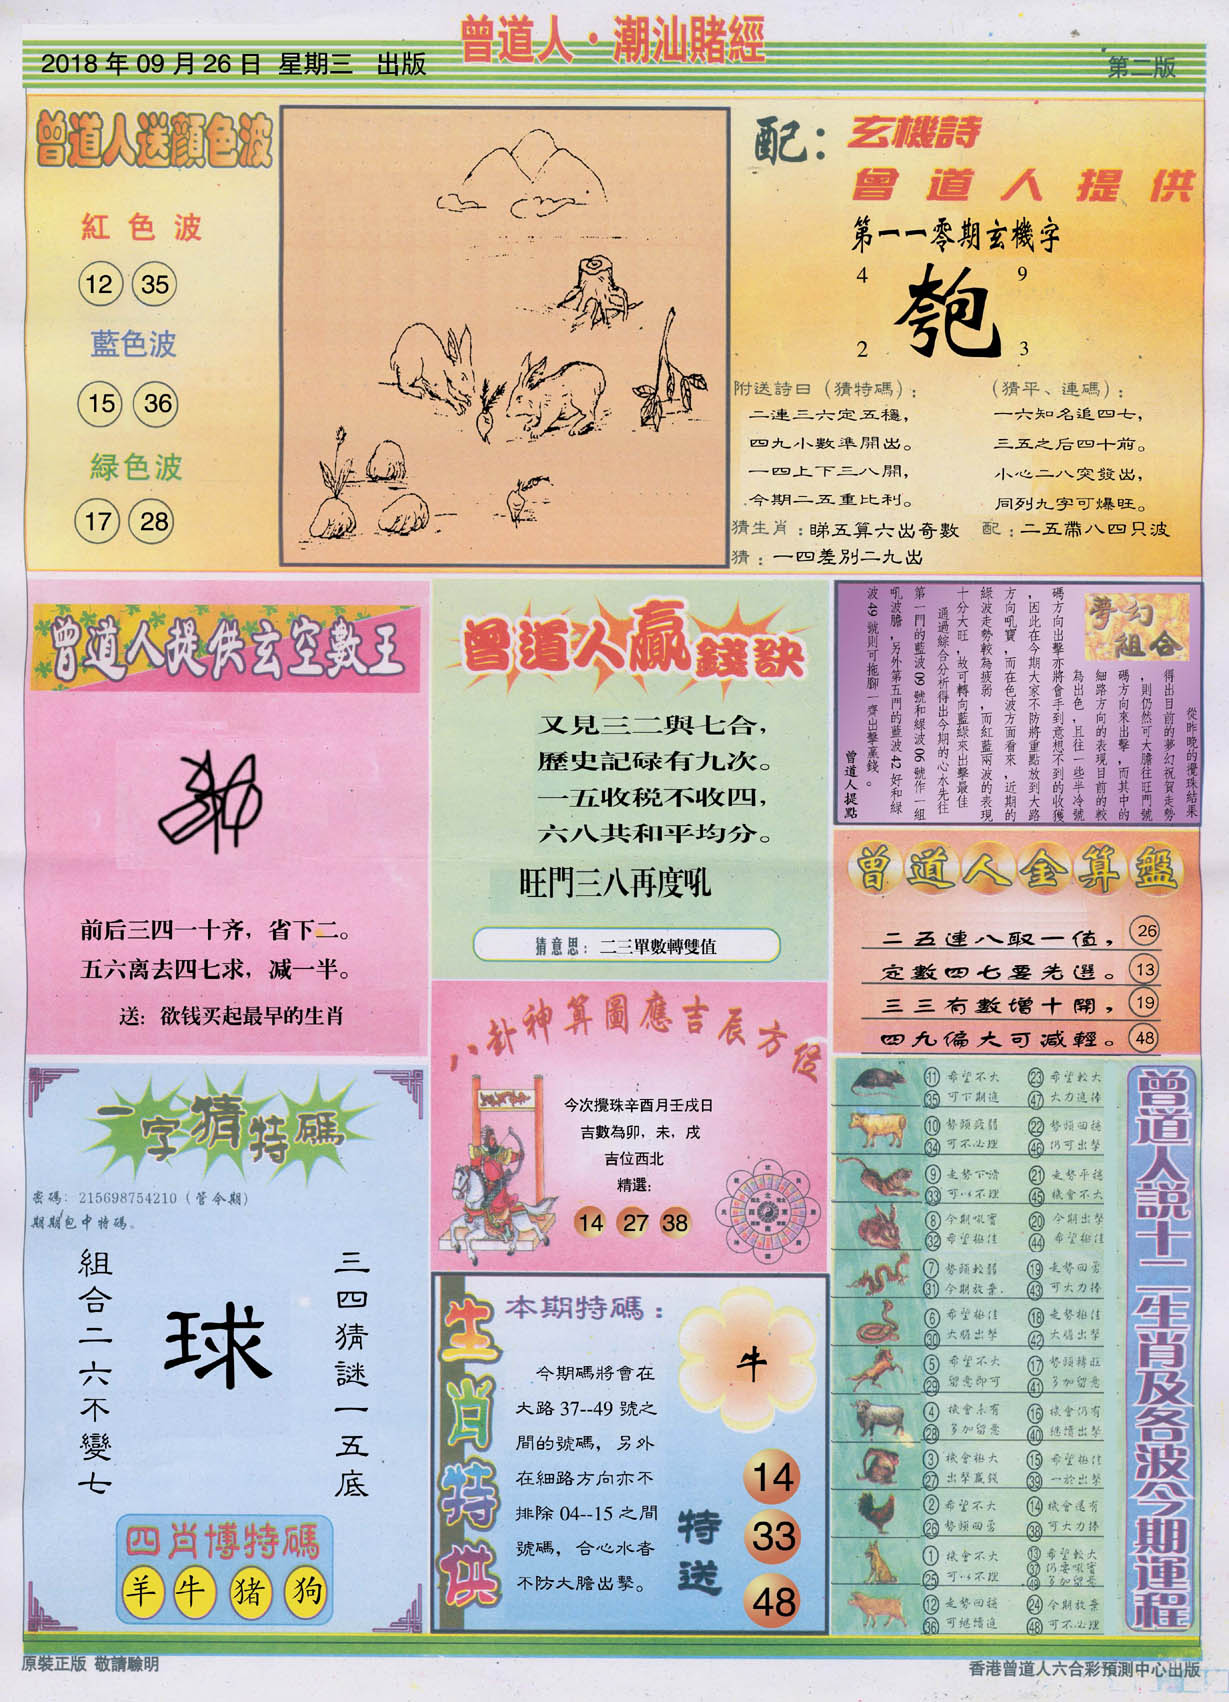 曾道人·潮汕賭經
2018 年 09 月 26 日 星期三 出版
第二版
曾道人送顏色波
紅色波
12 35
藍色波
15 36
緑色波
17 28
配：玄機詩
曾道人提供
第一一零期玄機字
4 9
匏
2 3
附送詩曰（猜特碼）：
二連三六定五穩，
四九小數準開出。
一四上下三八開，
今期二五重比利。
（猜平、連碼）：
一六知名追四七，
三五之后四十前。
小心二八突發出，
同列九字可爆旺。
猜生肖：睇五算六出奇數 配：二五帶八四只波
猜：一四差別二九出
曾道人提供玄空數王
前后三四一十齐，省下二。
五六离去四七求，减一半。
送：欲钱买起最早的生肖
曾道人贏錢訣
又見三二與七合，
歷史記碌有九次。
一五收税不收四，
六八共和平均分。
旺門三八再度吼
猜意思：二三單數轉雙值
夢幻
組合
從昨晚的攪珠結果
得出目前的夢幻祝賀走勢
，則仍然可大膽往旺門號
碼方向來出擊，而其中的
細路方向的表現目前的較
為出色，且往一些半冷號
碼方向出擊亦將會手到意想不到的收獲
，因此在今期大家不防將重點放到大路
方向吼寶，而在色波方面看來，近期的
綠波走勢較為疲弱，而紅藍兩波的表現
十分大旺，故可轉向藍綠來出擊最佳
通過綜合分析得出今期的心水先往
第一門的藍波 09 號和綠波 06 號作一組
吼波膽，另外第五門的藍波 42 好和綠
波 49 號則可拖腳一齊出擊贏錢。
曾道人提點
曾道人金算盤
二五連八取一值， 26
定數四七要先選。 13
三三有數增十開， 19
四九偏大可減輕。 48
八卦神算圖應吉辰方位
今次攪珠辛酉月壬戌日
吉數為卯，未，戌
吉位西北
精選：
14 27 38
一字猜特碼
密碼：215698754210（管令期）
期期包中特碼。
三四猜謎一五底
球
組合二六不變七
四肖博特碼
羊 牛 猪 狗
生肖特供
本期特碼：
牛
今期碼將會在
大路 37--49 號之
間的號碼，另外
在細路方向亦不
排除 04--15 之間
號碼，合心水者
不防大膽出擊。
特送
14
33
48
曾道人説十二生肖及各波今期運程
11 希望不大 23 希望較大
35 可下期進 47 大力進捧
10 勢頭疲弱 22 勢頭回穩
34 可不必理 46 仍可出擊
9 走勢下滑 21 走勢平穩
33 可以不理 45 機會不大
8 今期吼寶 20 今期出擊
32 希望極佳 44 希望極佳
7 勢頭較弱 19 走勢回勇
31 今期放棄. 43 可大力捧
6 希望極佳 18 走勢極佳
30 大膽出擊 42 大膽出擊
5 希望不大 17 勢頭轉旺
29 留意即可 41 多加留意
4 機會未有 16 機會仍有
28 多加留意 40 繼續出擊
3 機會極大 15 希望極佳
27 出擊贏錢 39 一於出擊
2 希望不大 14 機會還有
26 勢頭回勇 38 可大力捧
1 機會不大 13 希望較大
37 仍要吼寶
25 可以不理 49 多加留意
12 走勢回穩 24 今期放棄
36 可繼續進 48 可不必理
原裝正版 敬請驗明
香港曾道人六合彩預測中心出版